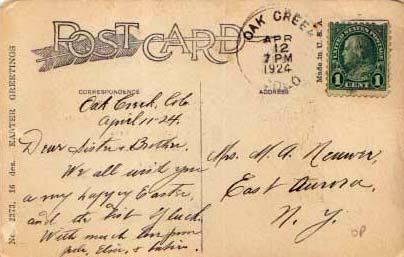 POST CARD
OAK CREEK
APR
12
7 PM
1924
COLO
Made in U.S.A.
UNITED STATES POSTAGE
1 CENT 1
No. 2373, 16 des. EASTER GREETINGS
CORRESPONDENCE
Oak Creek, Colo
April 11-24.
Dear Sister & Brother,
We all wish you
a very happy Easter,
and the best of luck.
With much love from
Pete, Elsie, &
ADDRESS
Mrs. M. A.
East Aurora,
N. Y.
OP